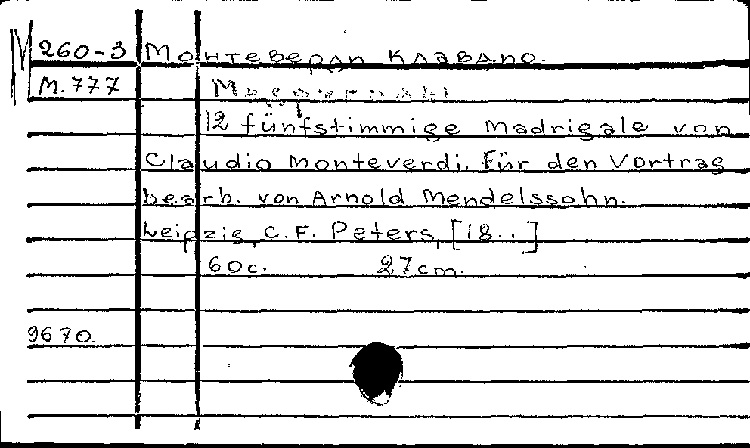 M 260-3 Монтеверди Клавдио.
М.777
12 fünfstimmige Madrigale von
Claudio Monteverdi. Für den Vortrag
bearb. von Arnold Mendelssohn.
Leipzig, C.F. Peters, [18..]
60c. 27cm.
9670